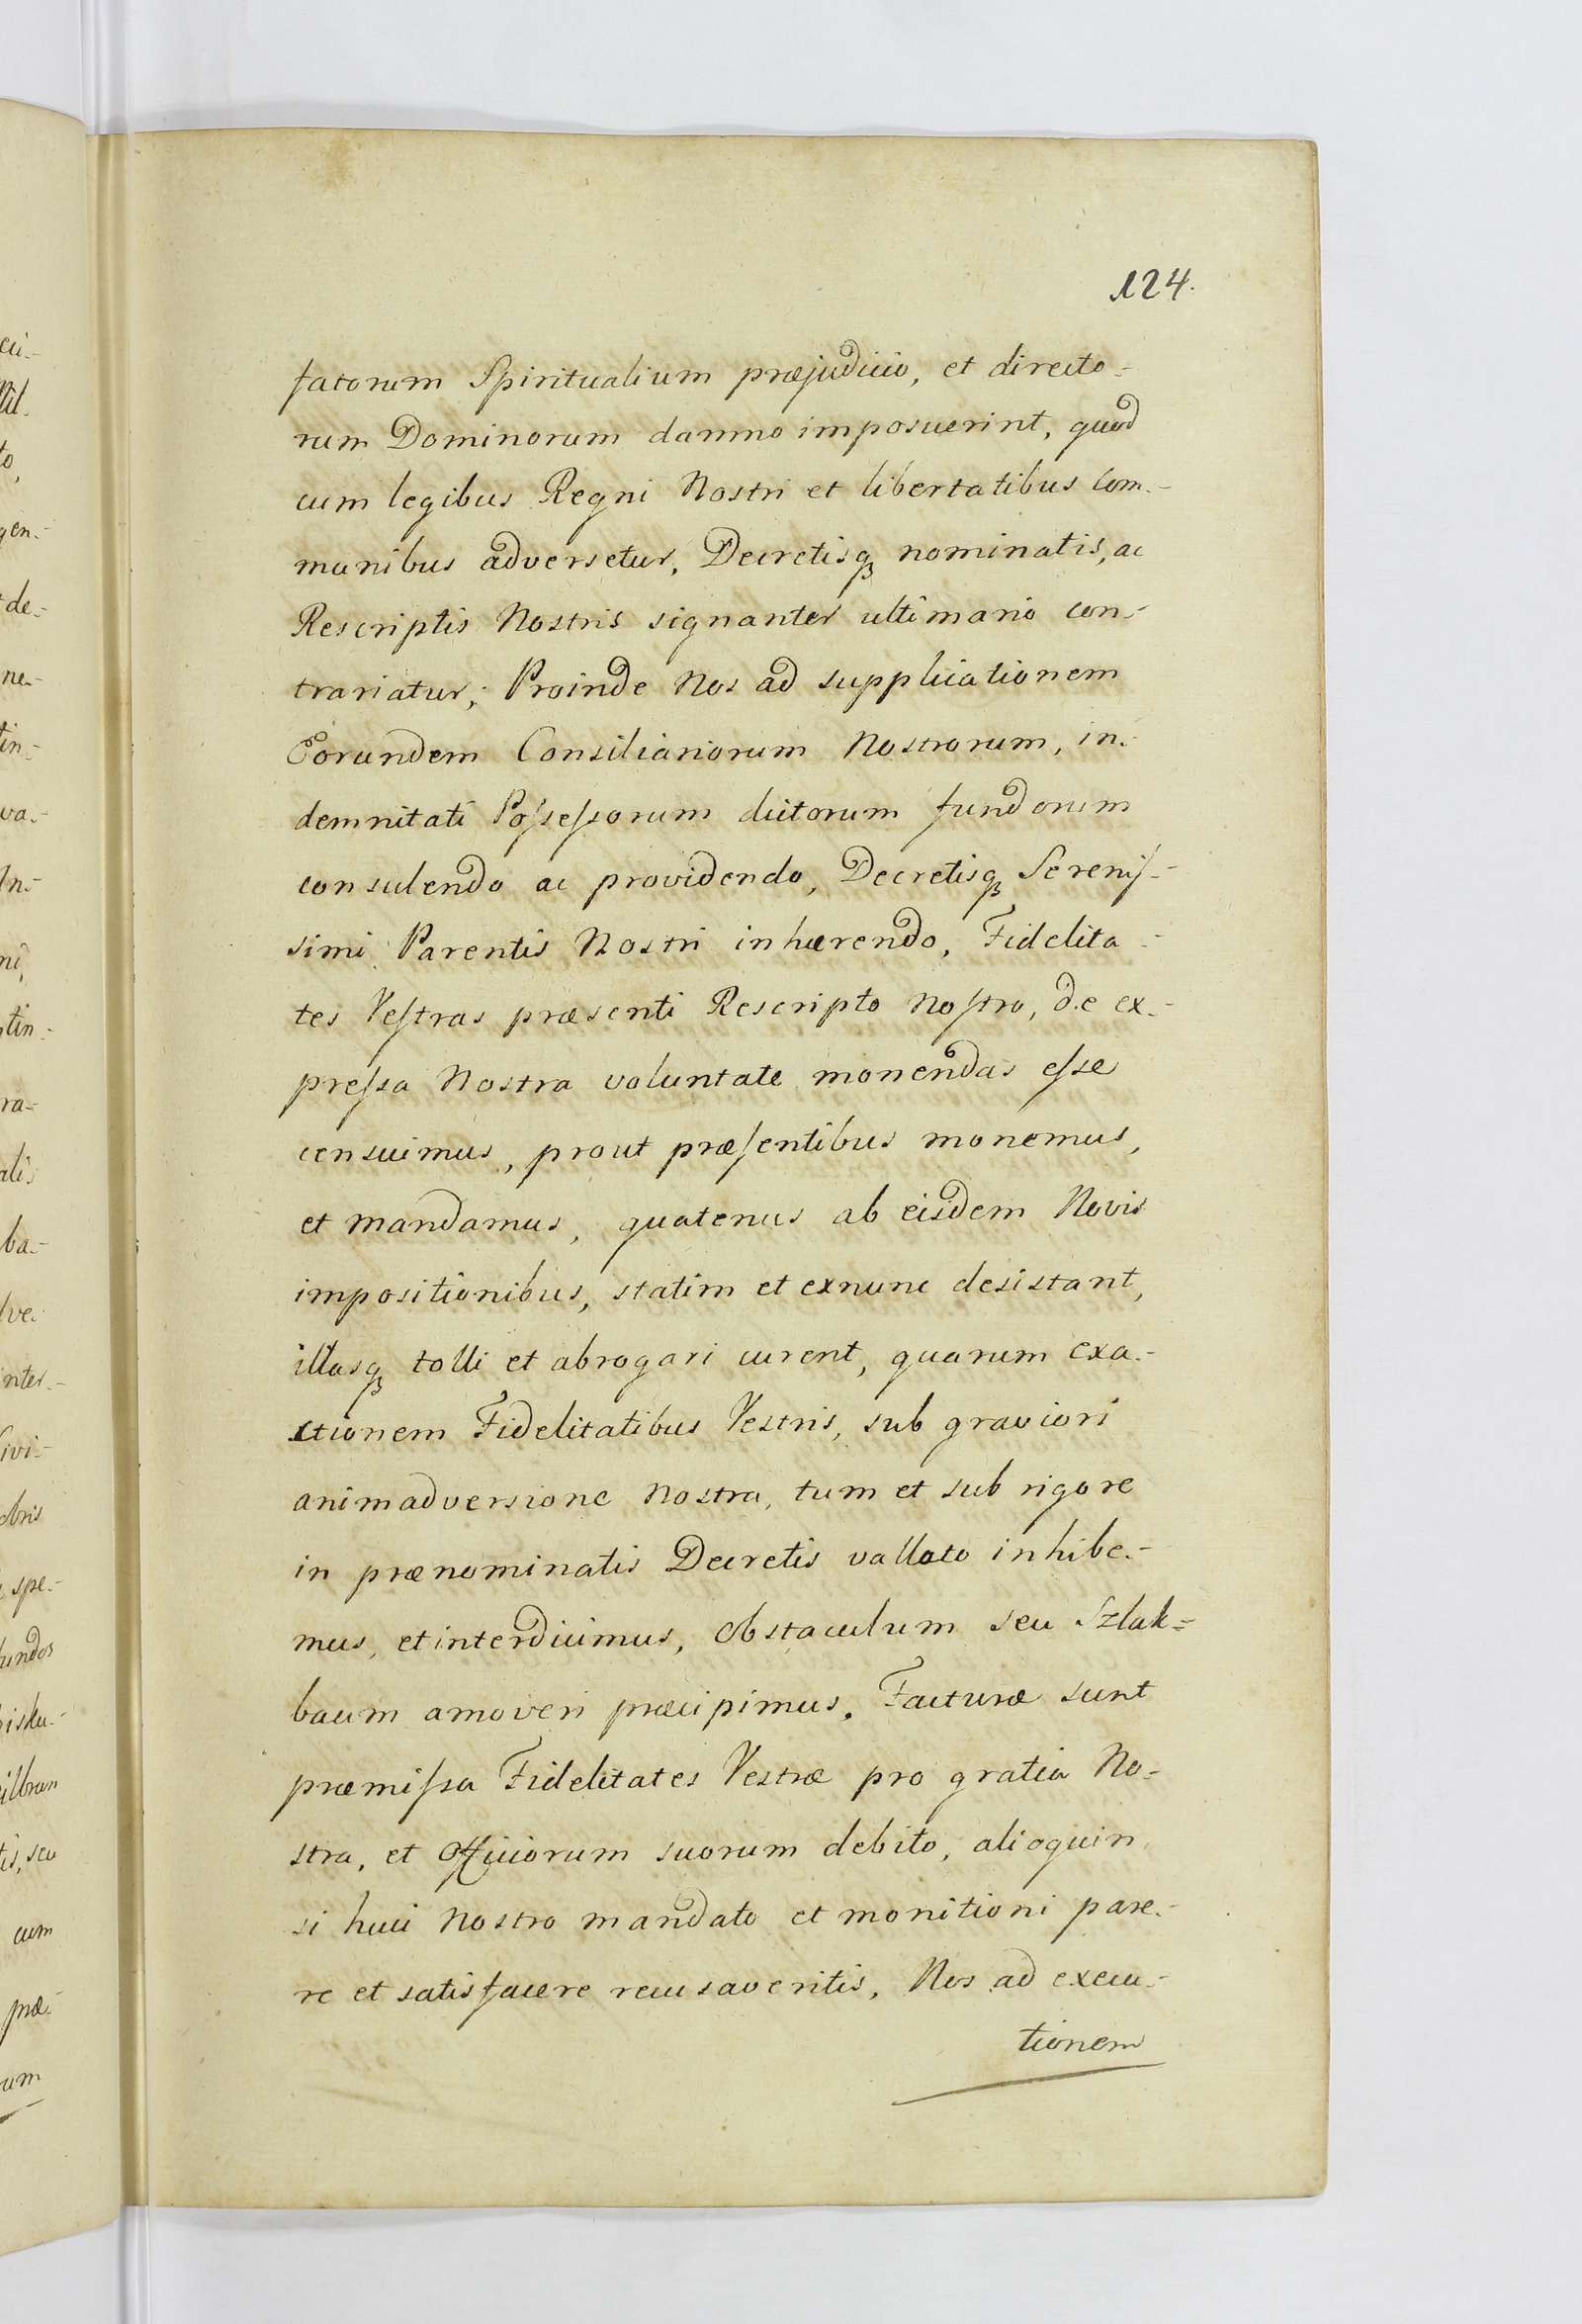 124.
fatorum Spiritualium præjudicio, et directo-
rum Dominorum damno imposuerint, quod
cum legibus Regni Nostri et libertatibus com-
munibus adversetur, Decretisq nominatis, ac
Rescriptis Nostris signanter ultimario con-
trariatur; Proinde Nos ad supplicationem
Eorundem Consiliariorum Nostrorum, in-
demnitati Poſseſsorum dictorum fundorum
consulendo ac providendo, Decretisq Sereniſ-
simi Parentis Nostri inhærendo, Fidelita-
tes Veſtras præsenti Rescripto Noſtro, de ex-
preſsa Nostra voluntate monendas eſse
censuimus, prout præſentibus monemus,
et mandamus, quatenus ab eisdem Novis
impositionibus, statim et exnunc desistant,
illasq tolli et abrogari curent, quarum exa-
ctionem Fidelitatibus Vestris, sub graviori
animadversione Nostra, tum et sub rigore
in prænominatis Decretis vallato inhibe-
mus, et interdicimus, Obstaculum seu Szlak=
baum amoveri præcipimus. Facturæ sunt
præmiſsa Fidelitates Vestræ pro gratia No-
stra, et Officiorum suorum debito, alioquin
si huic Nostro mandato et monitioni pare-
re et satisfacere recusaveritis, Nos ad execu-
tionem